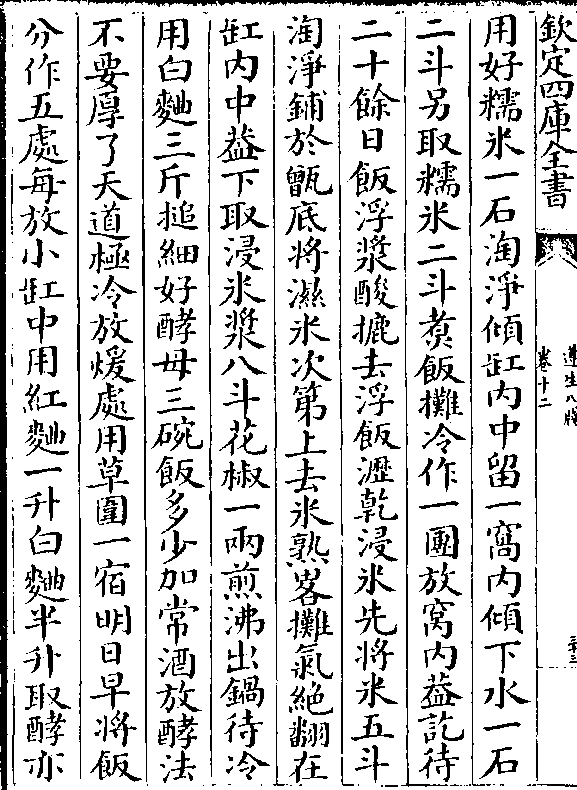 欽定四庫全書
遵生八牋
卷十二
用好糯米一石淘淨傾缸內中留一窩內傾下水一石
二斗另取糯米二斗煑飯攤冷作一團放窩內葢訖待
二十餘日飯浮漿酸摝去浮飯瀝乾浸米先將米五斗
淘淨鋪於甑底將濕米次第上去米熟畧攤氣絶翻在
缸內中葢下取浸米漿八斗花椒一兩煎沸出鍋待冷
用白麯三斤搥細好酵母三碗飯多少加常酒放酵法
不要厚了天道極冷放煖處用草圍一宿明日早將飯
分作五處每放小缸中用紅麯一升白麯半升取酵亦